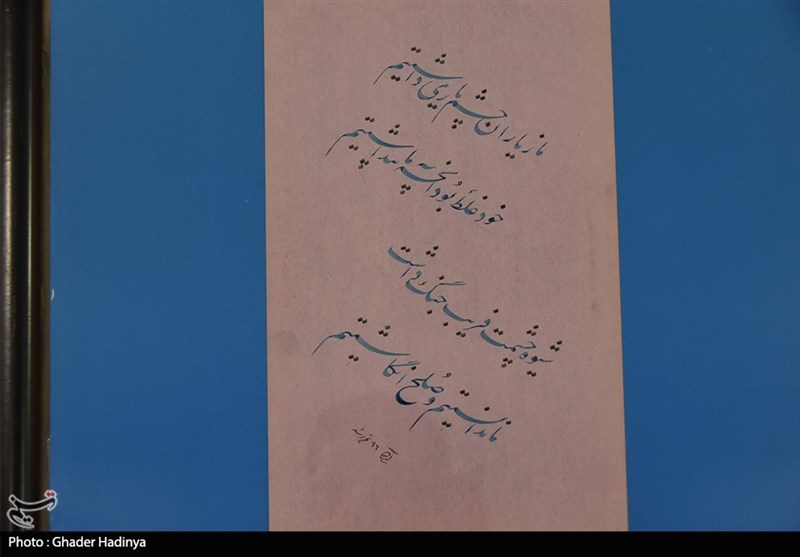 ما ز یاران چشم یاری داشتیم
خود غلط بود آنچه ما پنداشتیم
شیوه چشمت فریب جنگ داشت
ما ندانستیم و صلح انگاشتیم
۹۶
تسنیم
Photo : Ghader Hadinya